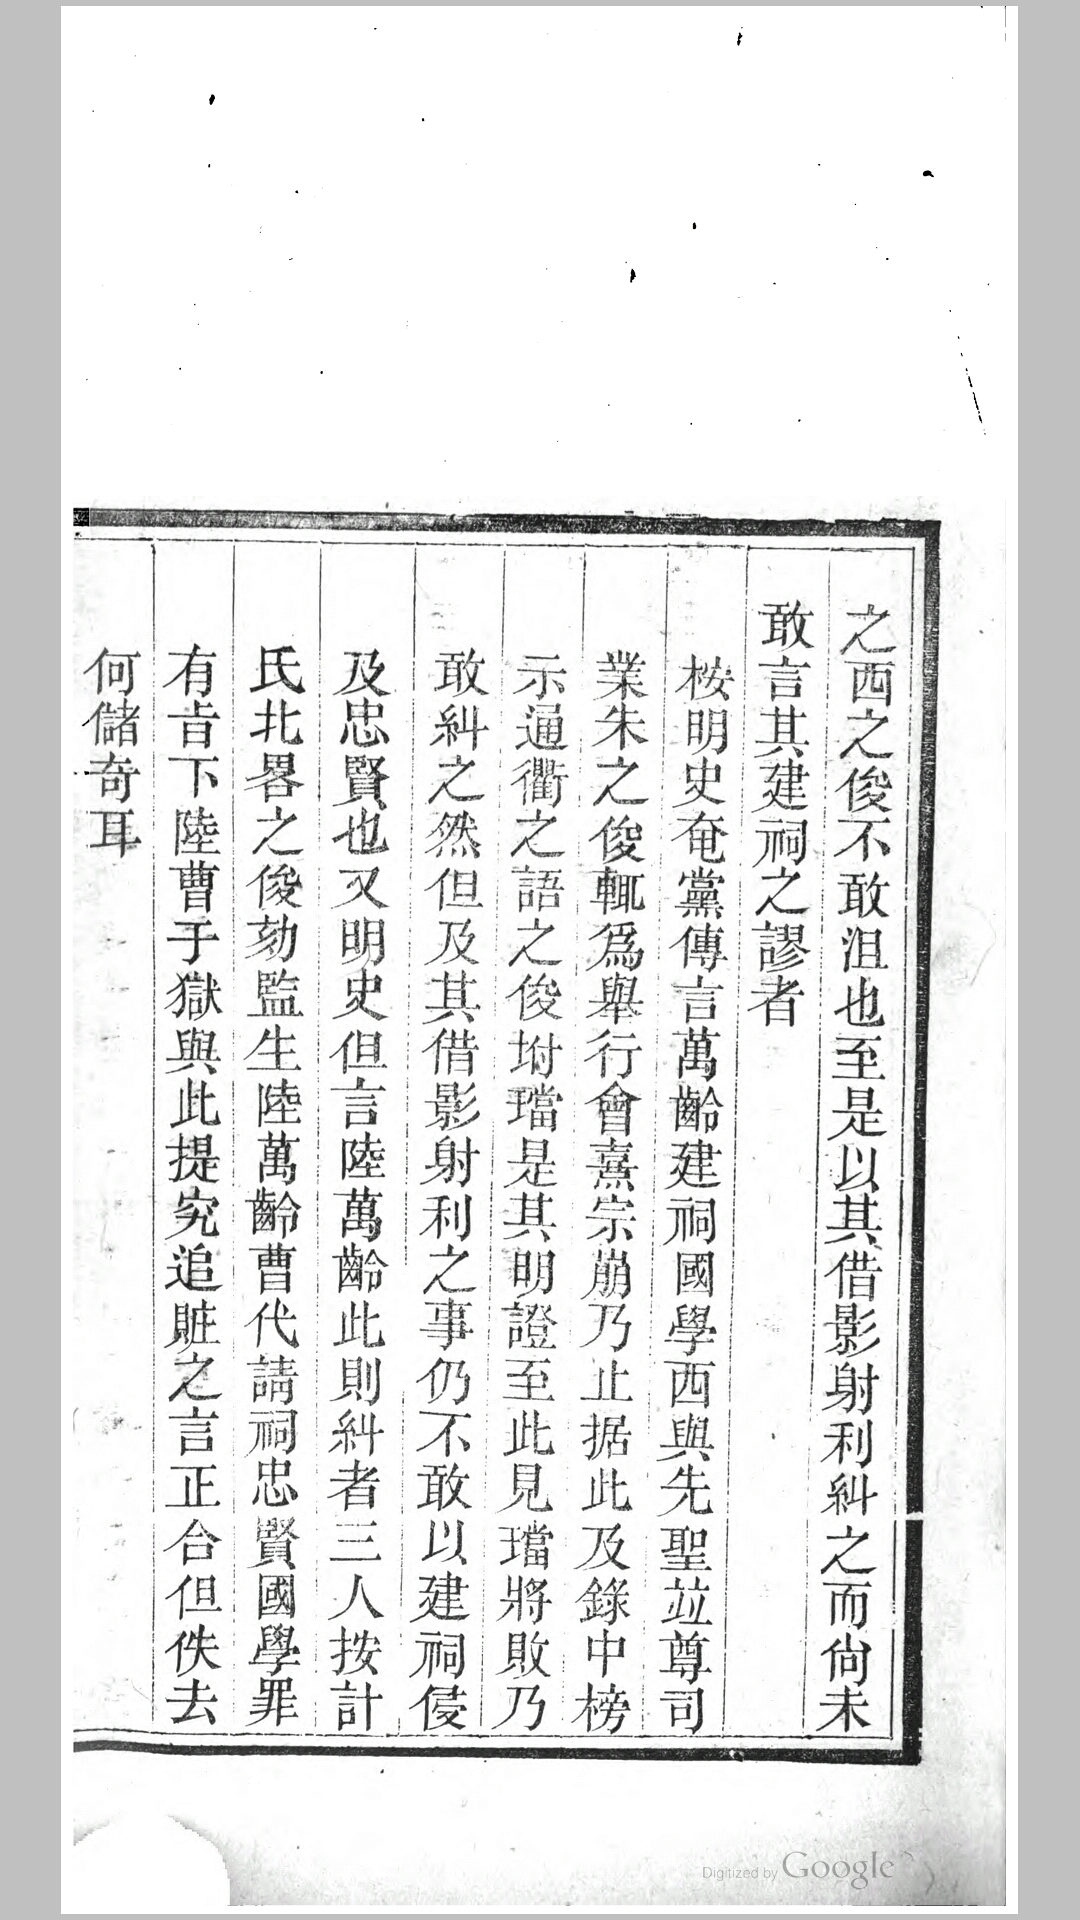 之西之俊不敢沮也至是以其借影射利糾之而尙未
敢言其建祠之謬者
桉明史奄黨傳言萬齡建祠國學西與先聖竝尊司
業朱之俊輒爲舉行會熹宗崩乃止据此及錄中榜
示通衢之語之俊坿璫是其明證至此見璫將敗乃
敢糾之然但及其借影射利之事仍不敢以建祠侵
及忠賢也又明史但言陸萬齡此則糾者三人按計
氏北畧之俊劾監生陸萬齡曹代請祠忠賢國學罪
有旨下陸曹于獄與此提究追賍之言正合但佚去
何儲奇耳
Digitized by Google